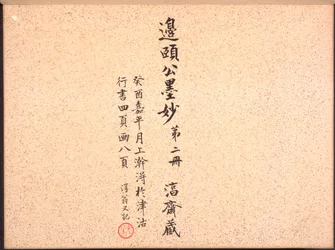 邊頤公墨妙 第二冊 滈齋藏
癸酉嘉平月上澣得於津沽
行書四頁畫八頁 淳翁又記